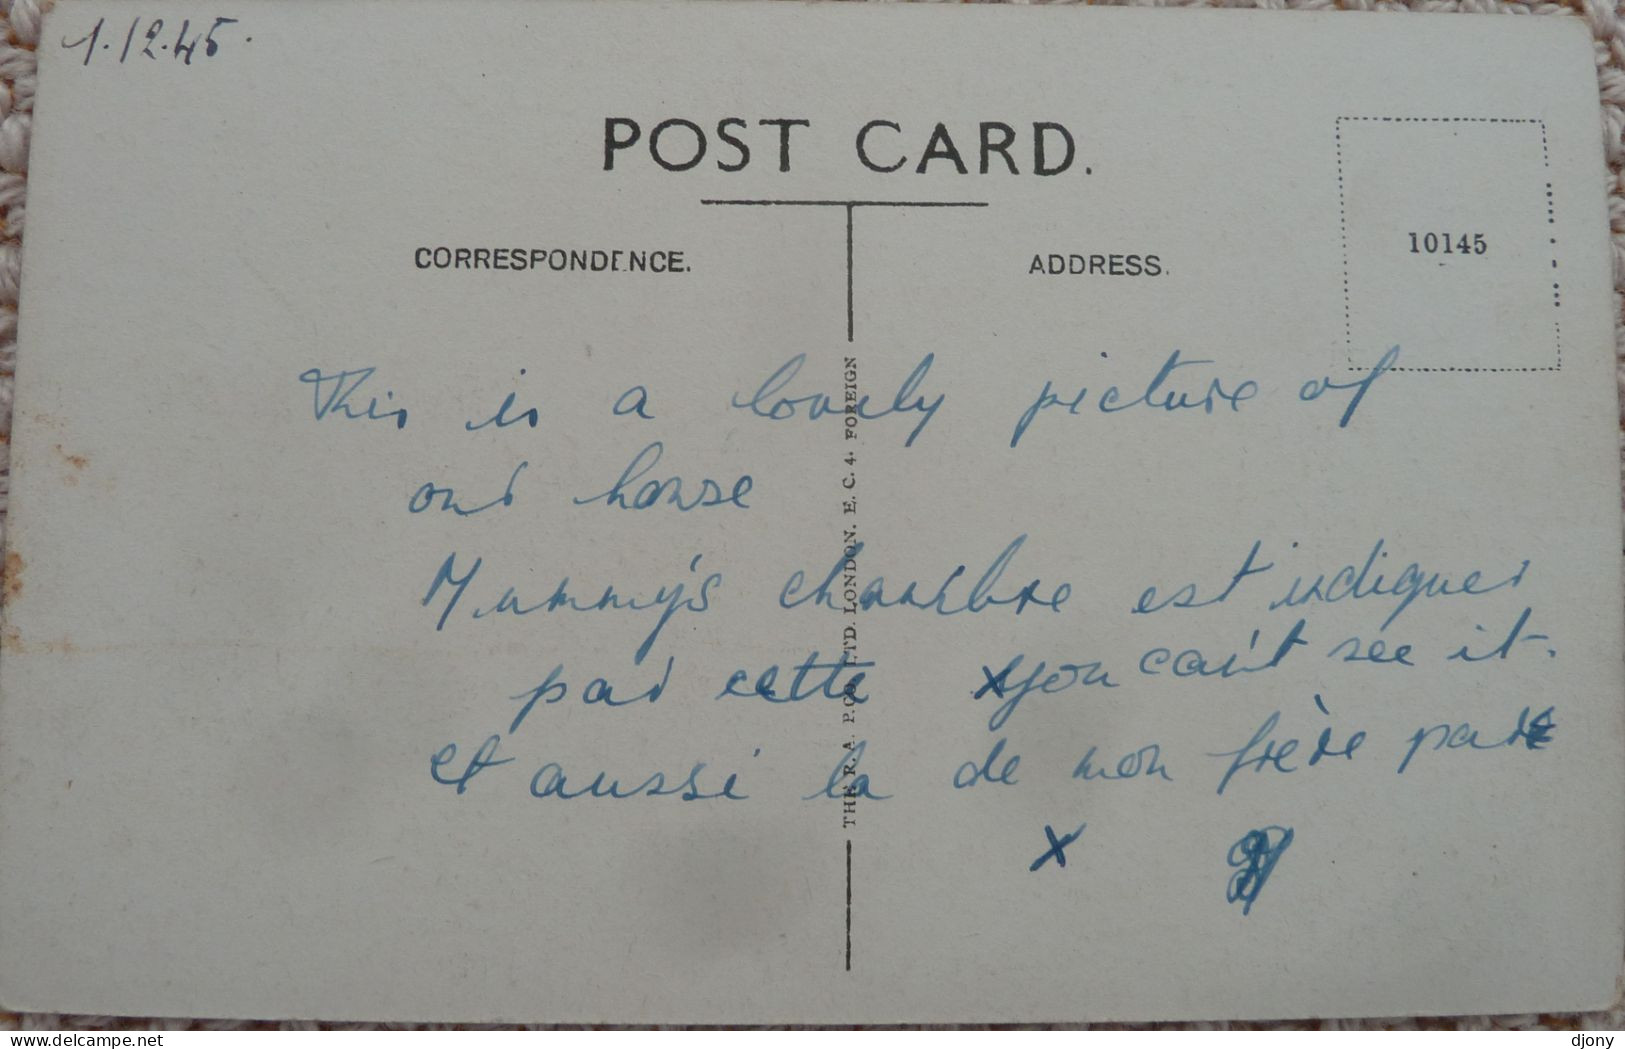 1.12.45.
POST CARD.
CORRESPONDENCE.
ADDRESS.
10145
THE R.A. P.CO. LTD. LONDON. E.C.4. FOREIGN
This is a lovely picture of
our house
Mummy's chambre est indiquer
par cette x you can't see it.
et aussi la de mon frère par
x
delcampe.net
djony